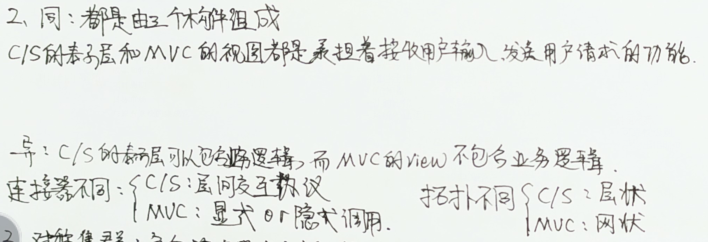 2、同：都是由三个构件组成
C/S的表示层和MVC的视图都是承担着接收用户输入、发送用户请求的功能.
异：C/S的表示层可以包含业务逻辑，而MVC的view不包含业务逻辑.
连接器不同：{C/S：层间交互协议 拓扑不同{C/S：层状
MVC：显式or隐式调用. MVC：网状